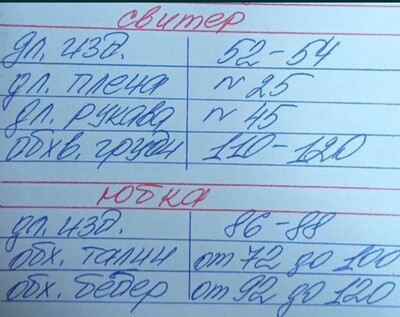 свитер
дл. изд. 52-54
дл. плеча ~ 25
дл. рукава ~ 45
обхв. груди 110-120
юбка
дл. изд. 86-88
обх. талии от 72 до 100
обх. бёдер от 92 до 120